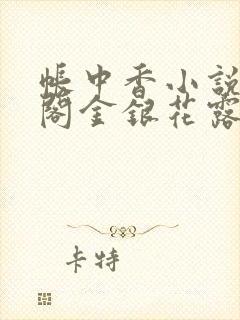 帳中香小說
閣金銀花露
卡特